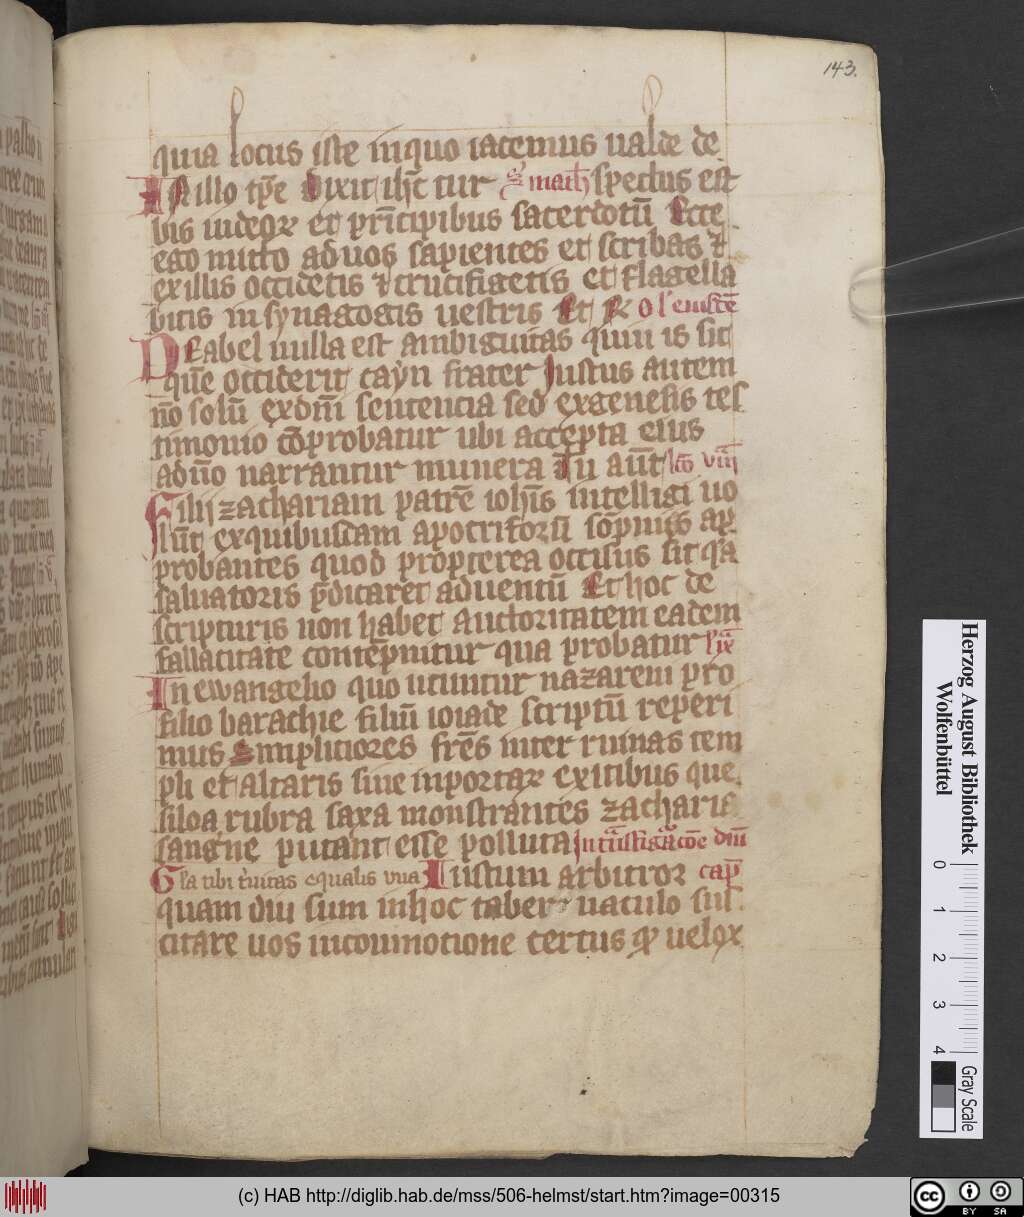 143.
quia locus iste inquo iacemus ualde de
In illo tp̄e Dixit ihc̄ tur s̄ math̄ spectus est
bis iudeoꝝ et prīcipibus sacerdotū Ecce
ego mitto aduos sapientes et scribas ⁊
exillis occidetis ⁊ crucifigetis et flagella
bitis in synagogis uestris Et ꝶ
De abel nulla est ambiguitas quin is sit
quē occiderit cayn frater Iustus autem
nō solū exdn̄i sentencia sed exgenesis tes
timonio cōprobatur ubi accepta eius
adn̄o narrantur munera Tu aūt lc̄o viij
Filij zachariam patrē ioh̄is intelligi uo
lūt exquibusdam apocrifoꝝ sōpnijs ap
probantes quod propterea occisus sit q̄a
saluatoris p̄dicaret aduentū Et hoc de
scripturis non habet auctoritatem eadem
fallacitate contēpnitur qua probatur l ix
In ewangelio quo utuntur nazareni pro
filio barachie filiū ioiade scriptū reperi
mus Simpliciores frēs inter ruinas tem
pli et altaris siue inportaꝝ exitibus que
siloa rubra saxa monstrantes zacharie
sangne putant esse polluta
Gl̄a tibi t̄nitas equalis vna Iustum arbitror cap̄
quam diu sum inhoc tabernaculo sus
citare uos incommotione certus ꝙ uelox
Herzog August Bibliothek
Wolfenbüttel
0 1 2 3 4
Gray Scale
(c) HAB http://diglib.hab.de/mss/506-helmst/start.htm?image=00315
cc BY SA